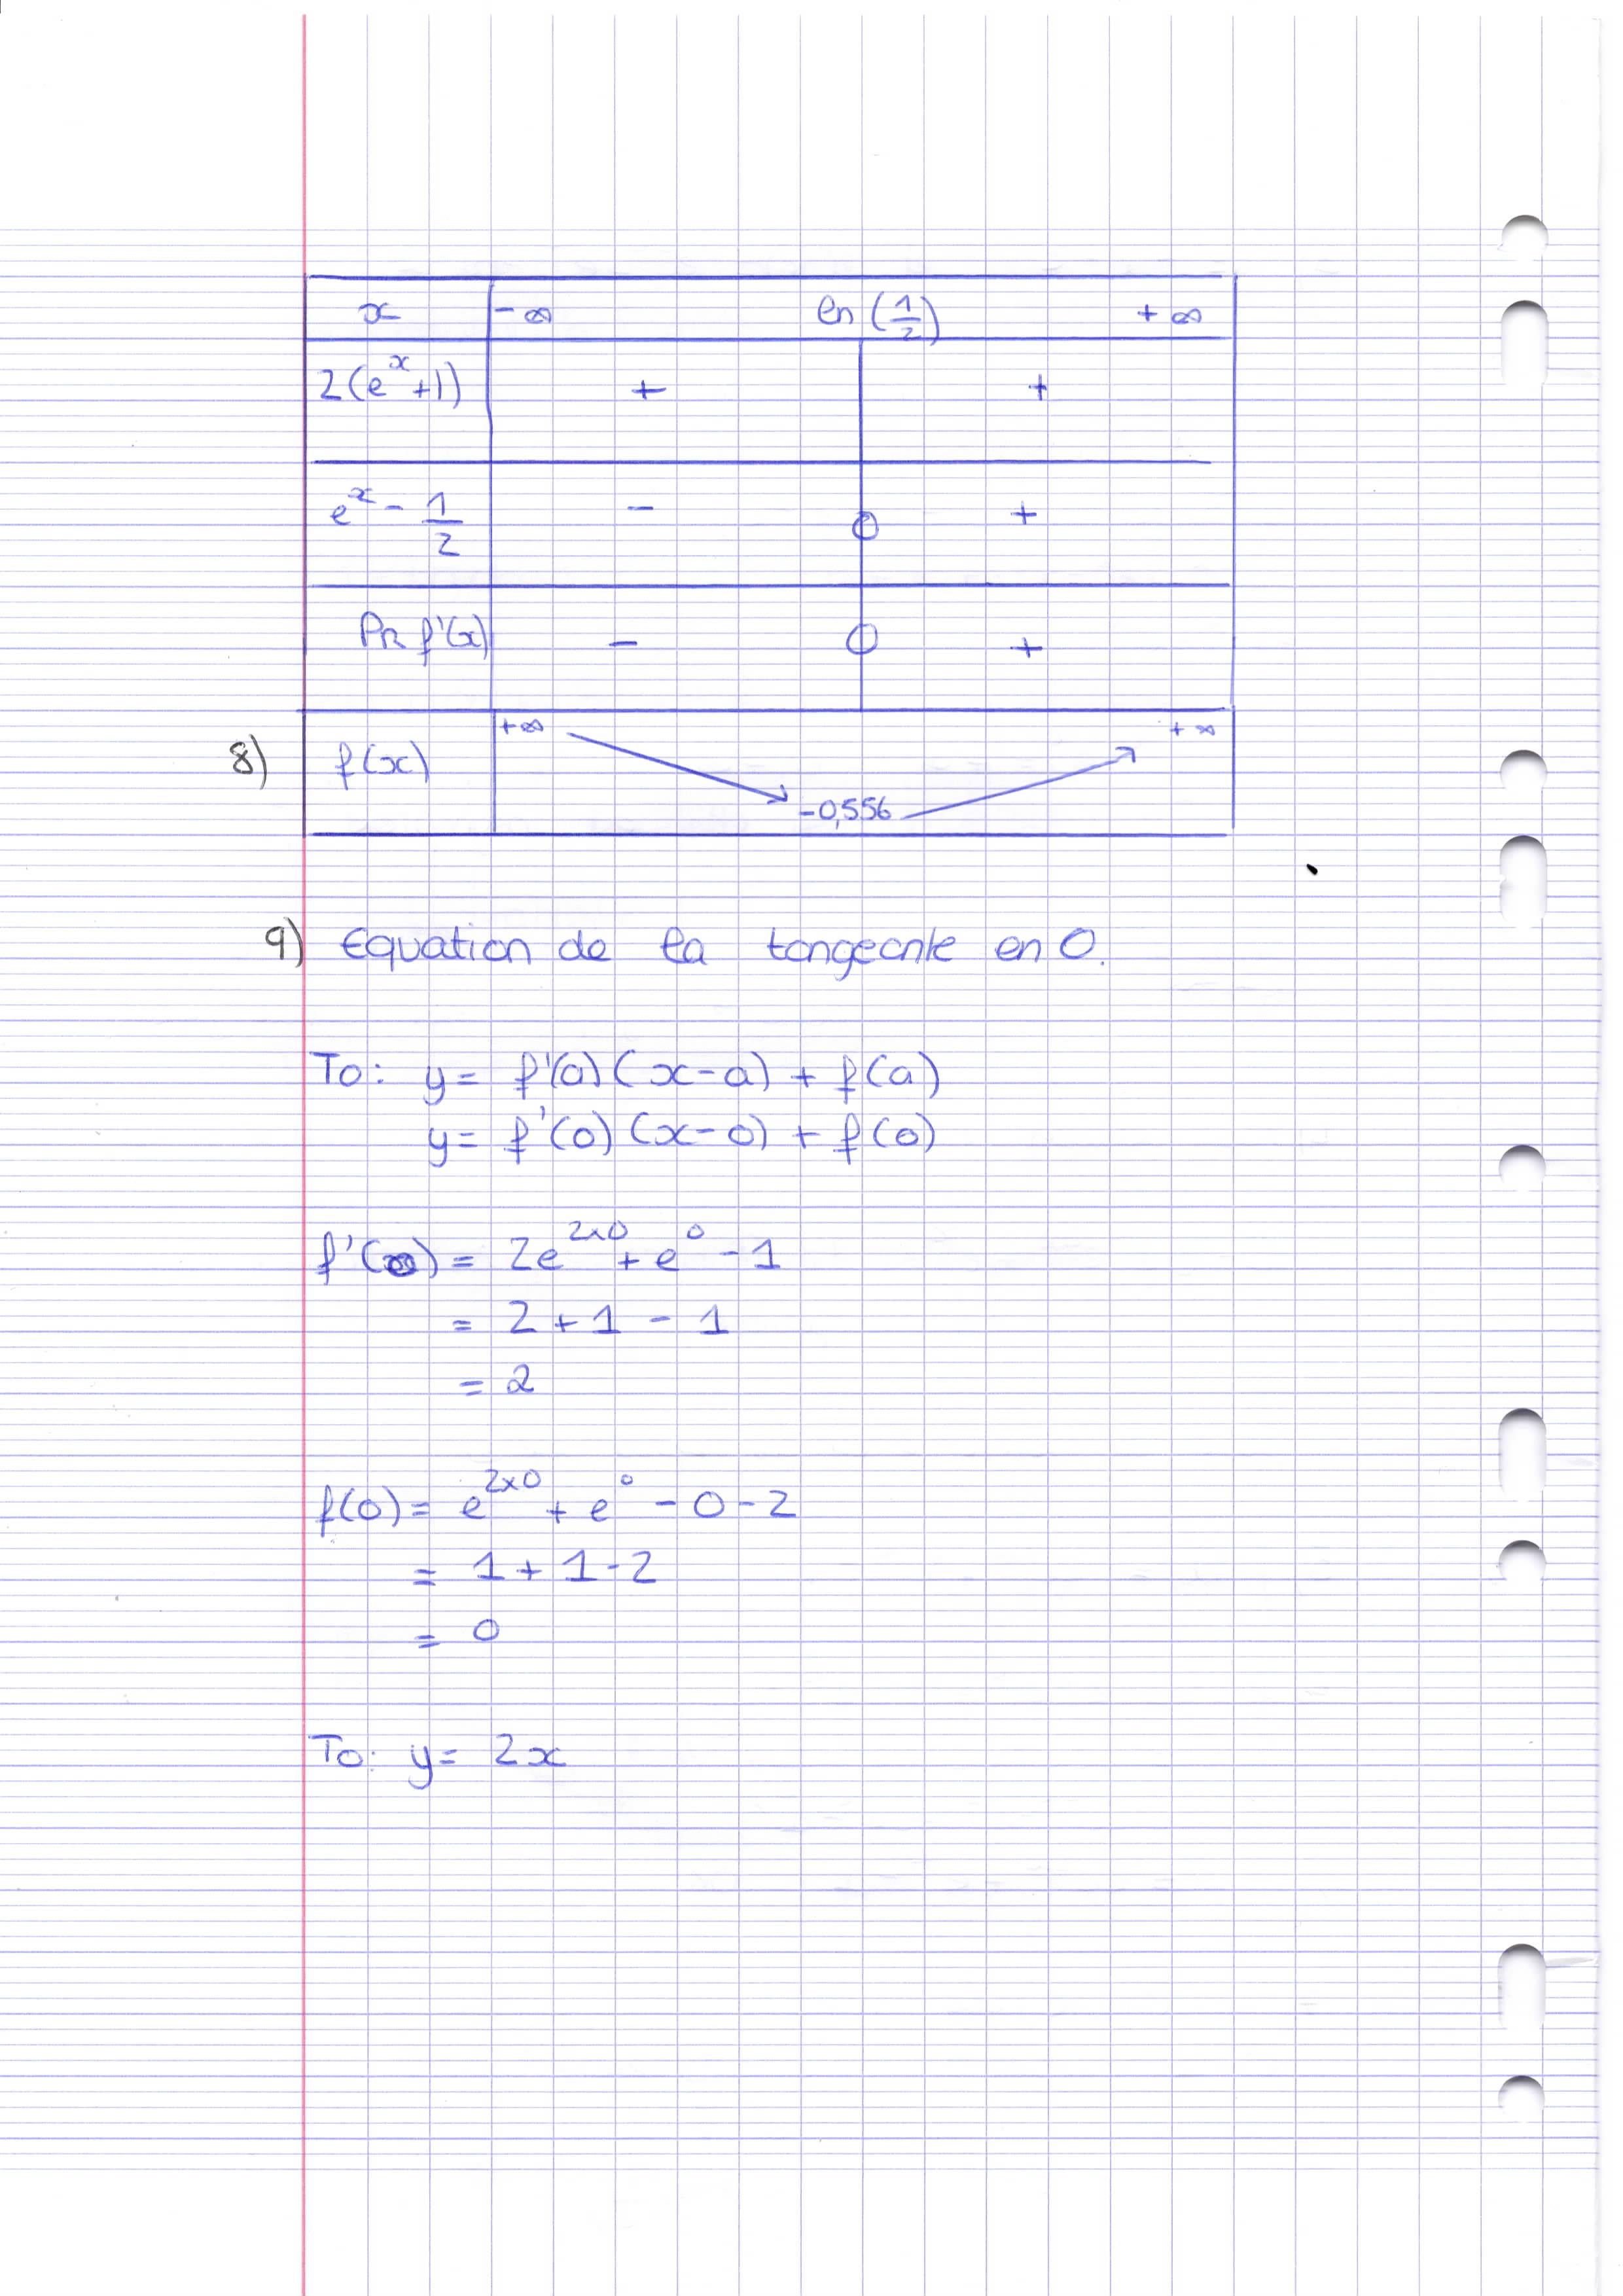 x -∞ ln(1/2) +∞
2(e^x+1) + +
e^x - 1/2 - 0 +
Pr f'(x) - 0 +
8) f(x) +∞ -0,556 +∞
9) Equation de la tangeante en 0.
To: y = f'(a)(x-a) + f(a)
y = f'(0)(x-0) + f(0)
f'(0) = 2e^2x0 + e^0 - 1
= 2 + 1 - 1
= 2
f(0) = e^2x0 + e^0 - 0 - 2
= 1 + 1 - 2
= 0
To: y = 2x